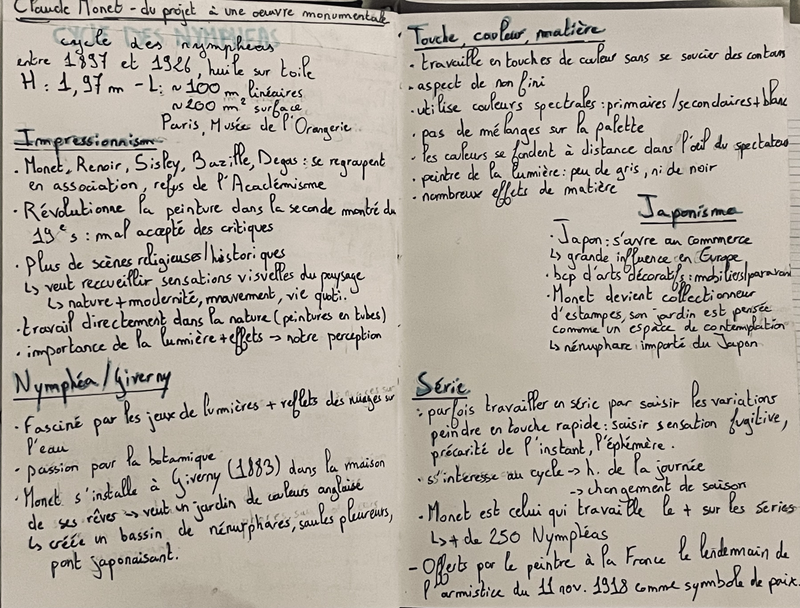 Claude Monet - du projet à une oeuvre monumentale
CYCLE DES NYMPHEAS
cycle des nymphéas
entre 1897 et 1926, huile sur toile
H : 1,97 m - L : ~100 m linéaires
~200 m² surface
Paris, Musée de l'Orangerie
Impressionnism
• Monet, Renoir, Sisley, Bazille, Degas : se regroupent
en association, refus de l'Académisme
• Révolutionne la peinture dans la seconde montré du
19e s : mal accepté des critiques
• plus de scènes religieuses/historiques
↳ veut recueillir sensations visuelles du paysage
↳ nature + modernité, mouvement, vie quoti.
• travail directement dans la nature (peintures en tubes)
• importance de la lumière + effets → notre perception
Nymphéa/Giverny
• Fasciné par les jeux de lumières + reflets des nuages sur
l'eau
• passion pour la botanique
• Monet s'installe à Giverny (1883) dans la maison
de ses rêves → veut un jardin de couleurs anglaise
↳ créée un bassin de nénuphares, saules pleureurs,
pont japonaisant.
Touche, couleur, matière
• travaille en touches de couleur sans se soucier des contours
• aspect de non fini
• utilise couleurs spectrales : primaires/secondaires + blanc
• pas de mélanges sur la palette
• les couleurs se fondent à distance dans l'oeil du spectateur
• peintre de la lumière : peu de gris, ni de noir
• nombreux effets de matière
Japonisme
• Japon : s'ouvre au commerce
↳ grande influence en Europe
• bcp d'arts décoratifs : mobiliers/paravant
• Monet devient collectionneur
d'estampes, son jardin est pensée
comme un espace de contemplation
↳ nénuphare importé du Japon
Série
• parfois travailler en série par saisir les variations
peindre en touche rapide : saisir sensation fugitive,
précarité de l'instant, l'éphémère.
• s'intéresse au cycle → h. de la journée
→ changement de saison
• Monet est celui qui travaille le + sur les séries
↳ + de 250 Nympléas
- Offerts par le peintre à la France le lendemain de
l'armistice du 11 nov. 1918 comme symbole de paix.